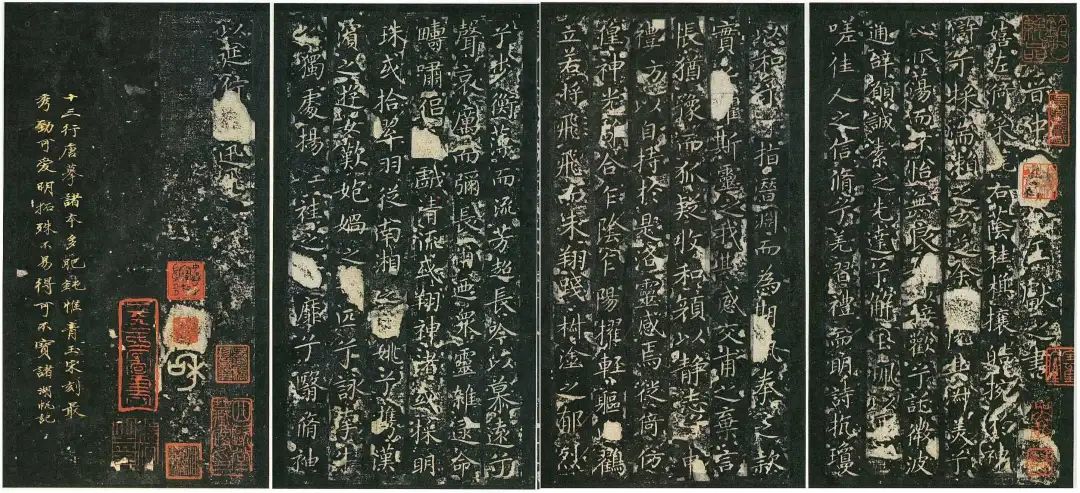 晉中書王獻之書
嬉左倚采右蔭桂攘皓捥於神
滸兮採湍瀨之玄芝余淑美兮
心振蕩而不怡無良接歡兮託微波
通辭願誠素之先達兮解玉佩要
嗟佳人之信脩兮羌習禮而明詩抗瓊
以和予兮指潛淵而為期執拳之款
實懼斯靈之我欺感交甫之棄言
悵猶豫而狐疑收和顏以靜志兮申
禮防以自持於是洛靈感焉徙倚仿
偟神光離合乍陰乍陽擢輕軀以鶴
立若將飛而未翔踐椒塗之郁烈
步蘅薄而流芳超長吟以慕遠兮
聲哀厲而彌長爾迺衆靈雜遝命
疇嘯侶戲清流或翔神渚或採明
珠或拾翠羽從南湘姚兮攜漢
濱之遊女歎炮媧之匹兮詠牽牛
之獨處揚輕袿之靡兮翳脩袖
以延佇迅飛
十三行唐摹諸本多肥鈍惟青玉宋刻最
秀勁可愛明拓殊不易得可不寶諸湖帆記